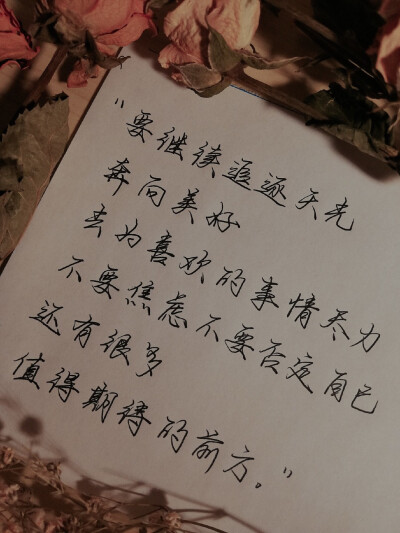 “要继续追逐天光
奔向美好
去为喜欢的事情尽力
不要焦虑不要否定自己
还有很多
值得期待的前方。”